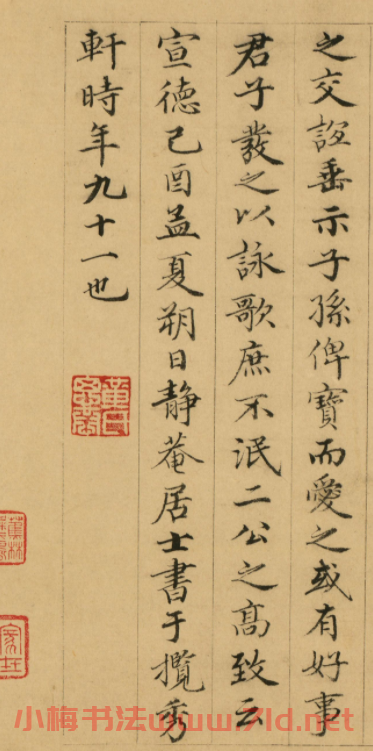 之交誼垂示子孫俾寶而愛之或有好事
君子發之以詠歌庶不泯二公之高致云
宣德己酉孟夏朔日靜菴居士書于攬秀
軒時年九十一也
小梅书法www.7ld.net